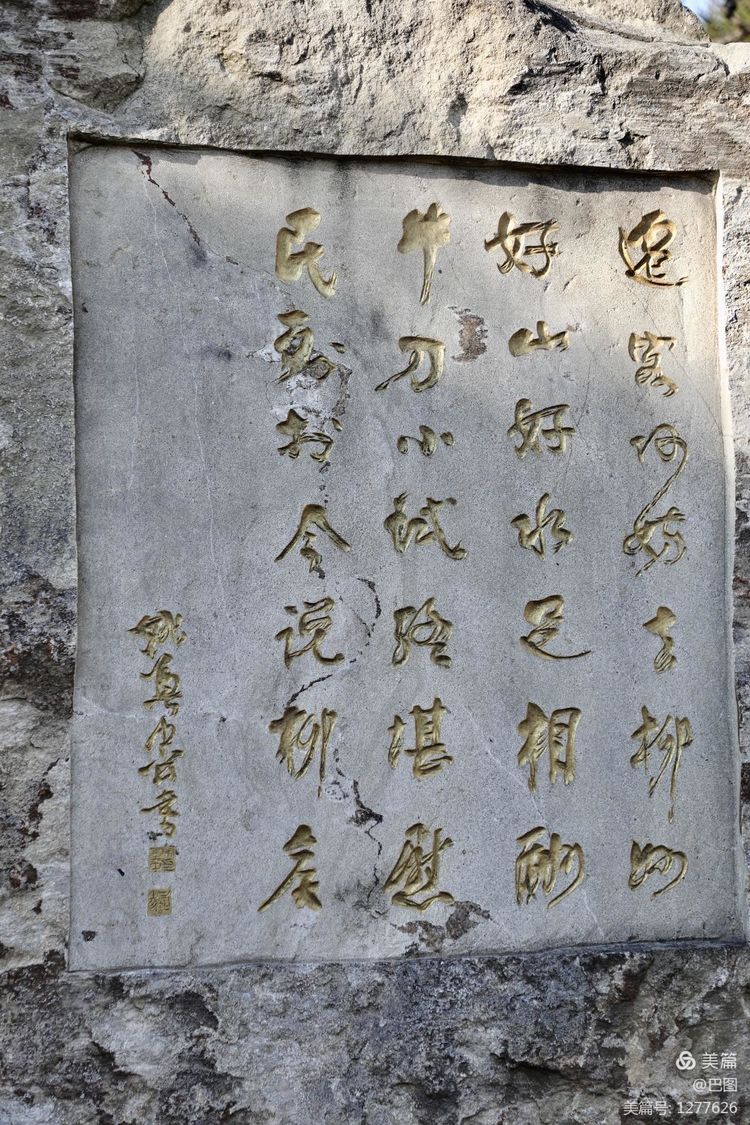 遷客何妨去柳州
好山好水足相酬
牛刀小试略堪慰
民到於今说柳侯
姚奠中书
美篇
@巴图
美篇号: 1277626